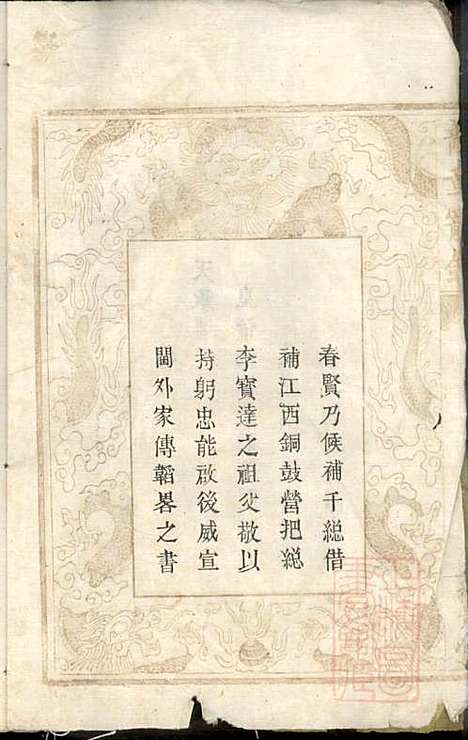 春賢乃候補千總借
補江西銅鼓營把總
李寳達之祖父敬以
持躬忠能啟後威宣
閫外家傳韜畧之書